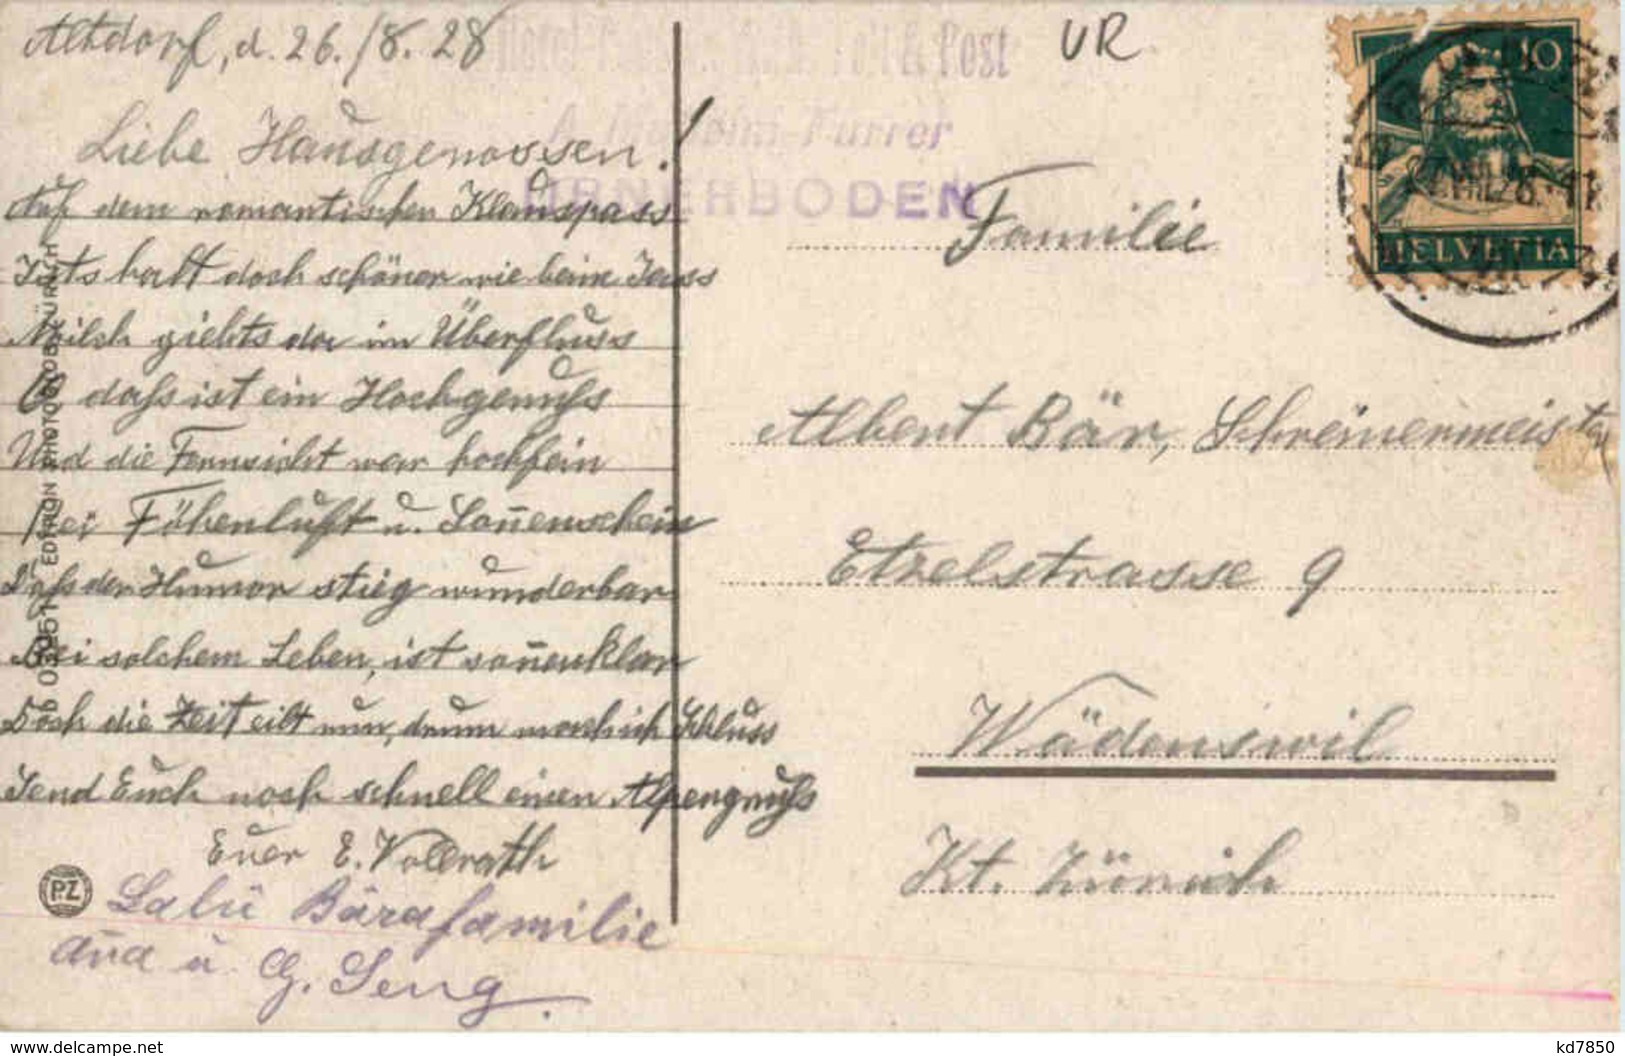 Altdorf, d. 26./8. 28
Liebe Hausgenossen!
Auf dem romantischen Klauspass
Ists halt doch schöner wie beim Jass
Milch giebts da im Überfluss
O dass ist ein Hochgenuss
Und die Fernsicht war hochfein
bei Föhenluft u. Soñenschein
Dass der Humor stieg wunderbar
Bei solchem Leben, ist soñenklar
Doch die Zeit eilt nun, drum mach ich Schluss
Send Euch noch schnell einen Alpengruss
Euer E. Vollrath
Salü Bärafamilie
Aña u. G. Seng.
P.Z
EDITION PHOTOGLOB ZÜRICH
Hotel
Post
Furrer
URNERBODEN
UR
10
HELVETIA
Familie
Albert Bär, Schreinermeister
Etzelstrasse 9
Wädenswil
Kt. Zürich
www.delcampe.net
kd7850